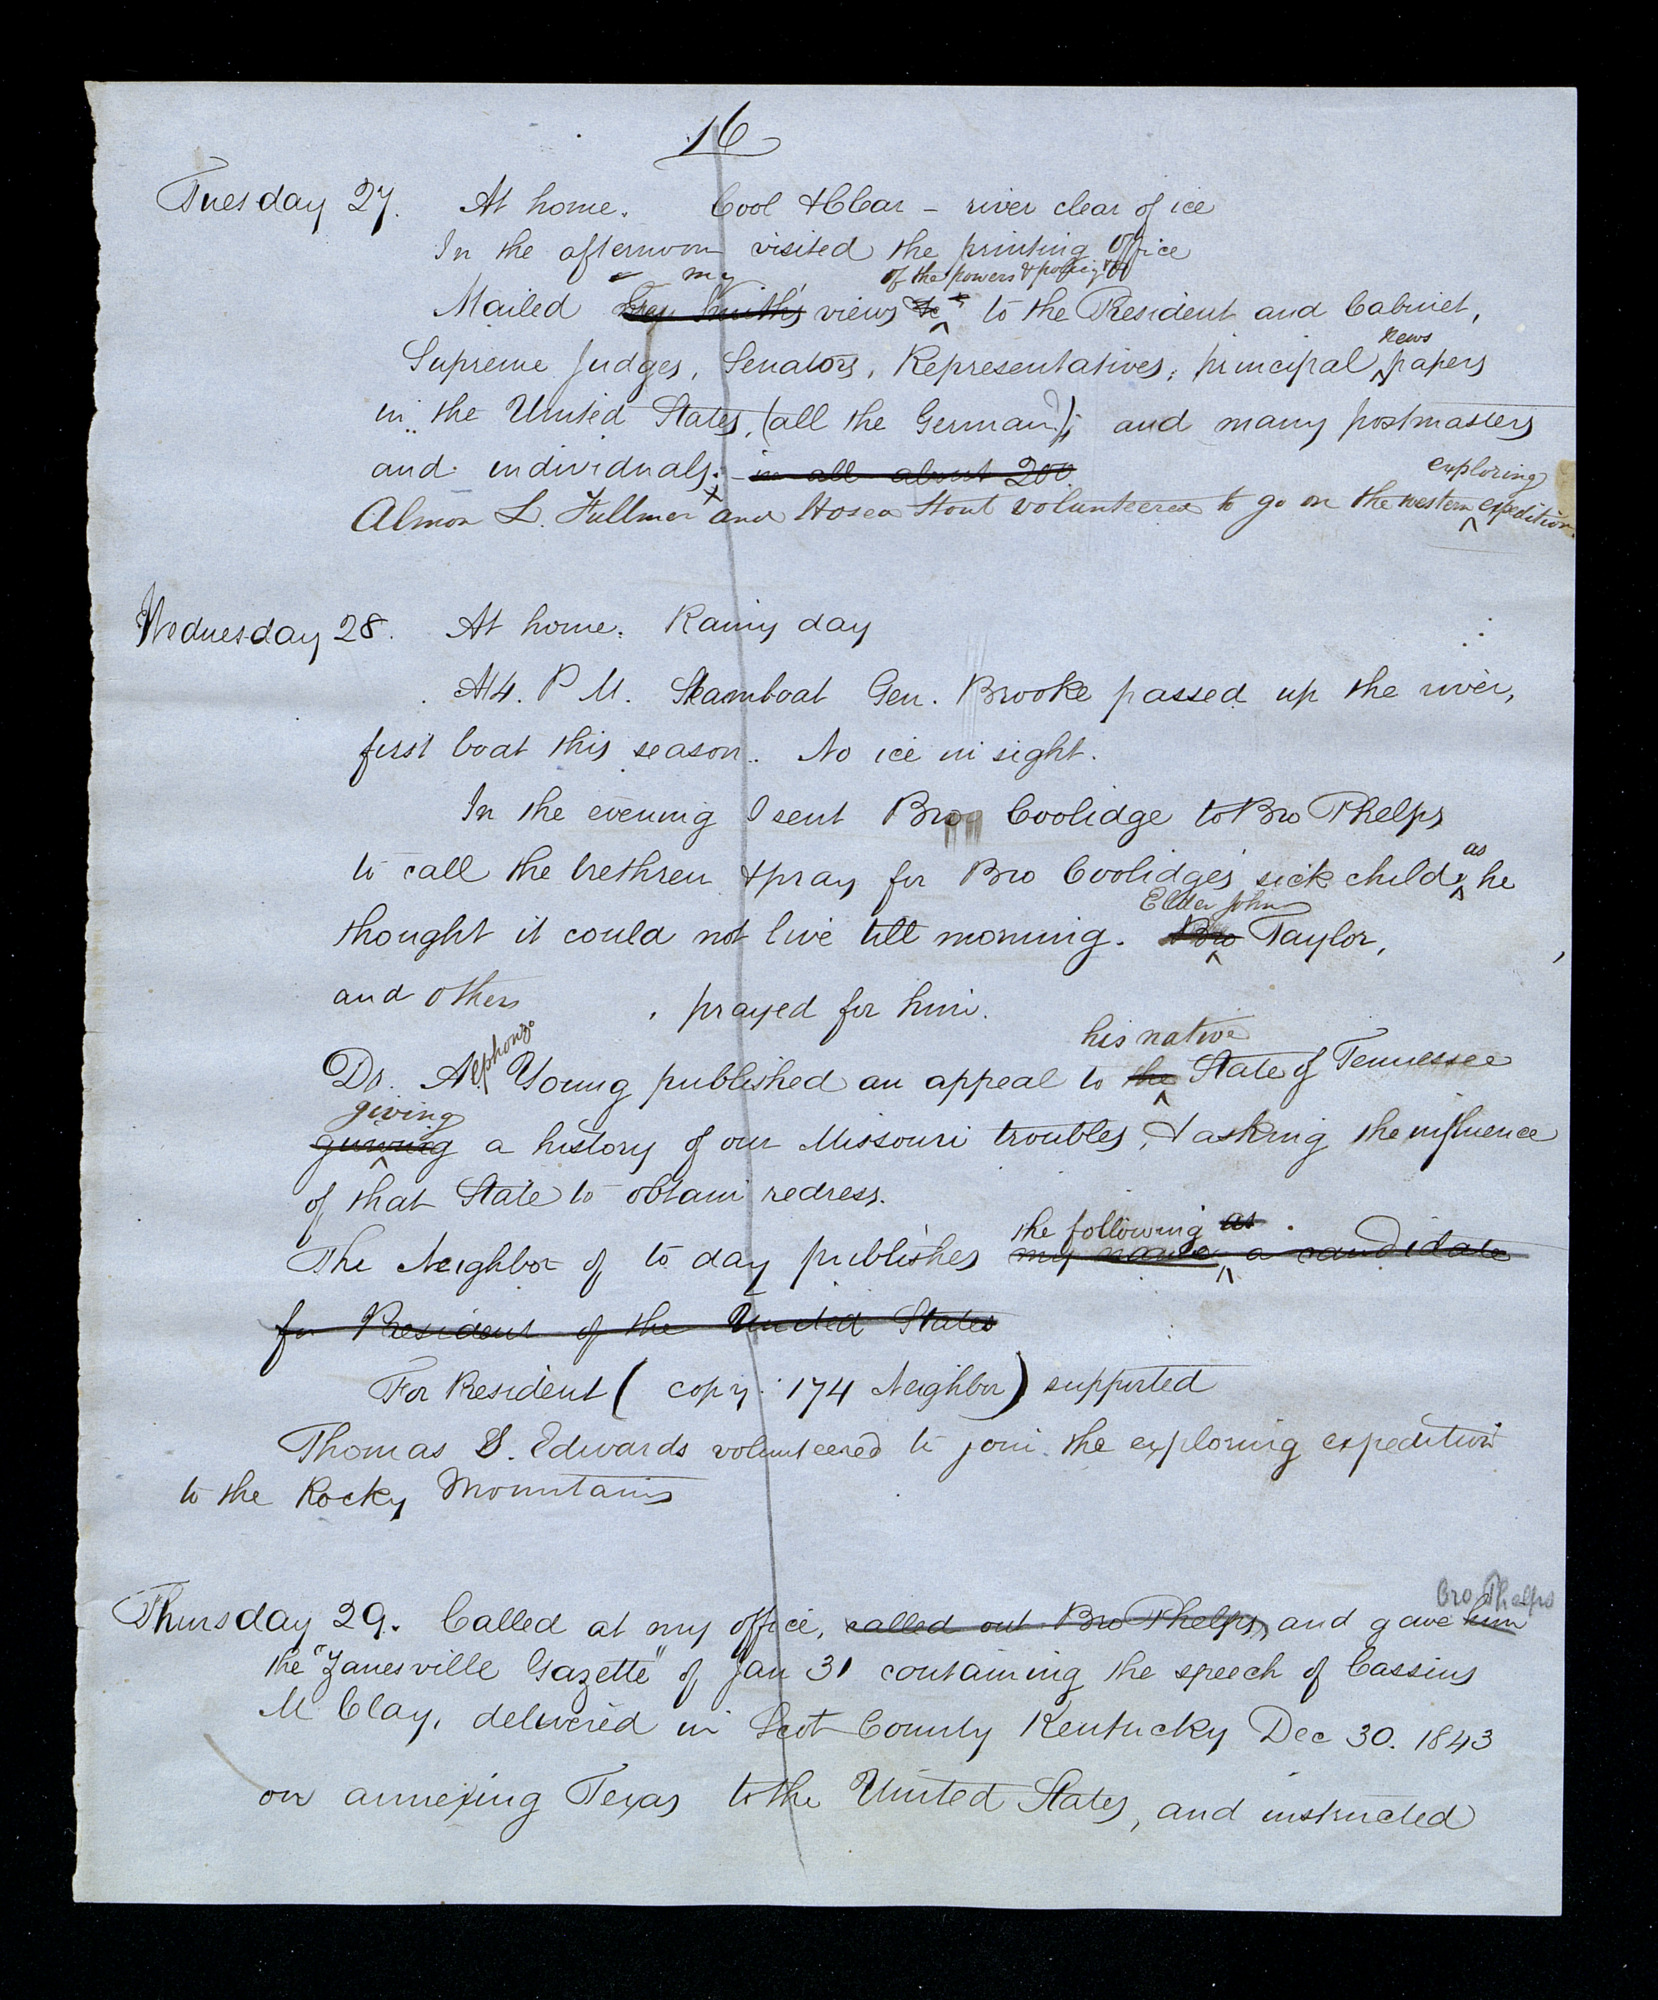 16
Tuesday 27. At home. Cool & Clear – river clear of ice
In the afternoon visited the printing office
my of the powers & policy &c
Mailed Gen Smith's views &c to the President and Cabinet,
news
Supreme Judges, Senators, Representatives, principal papers
in the United States, (all the German); and many postmasters
and individuals. – in all about 200.
exploring
Almon L. Fullmer and Hosea Stout volunteered to go on the western expedition.
Wednesday 28. At home. Rainy day
At 4. P M. Steamboat Gen. Brooke passed up the river,
first boat this season. No ice in sight.
In the evening I sent Bro Coolidge to Bro Phelps
as
to call the brethren & pray for Bro Coolidge's sick child, he
Elder John
thought it could not live till morning. Bro Taylor,
and others, prayed for him.
his native
Dr. Alphonzo Young published an appeal to the State of Tennessee
giving
guiving a history of our Missouri troubles, & asking the influence
of that State to obtain redress.
the following as
The Neighbor of to day publishes my name a candidate
for President of the United States
For President (copy. 174 Neighbor) supported
Thomas S. Edwards volunteered to join the exploring expedition
to the Rocky Mountains
Bro Phelps
Thursday 29. Called at my office, called out Bro Phelps, and gave him
the "Zanesville Gazette" of Jan 31 containing the speech of Cassius
M Clay, delivered in Scot County Kentucky Dec 30. 1843
on annexing Texas to the United States, and instructed